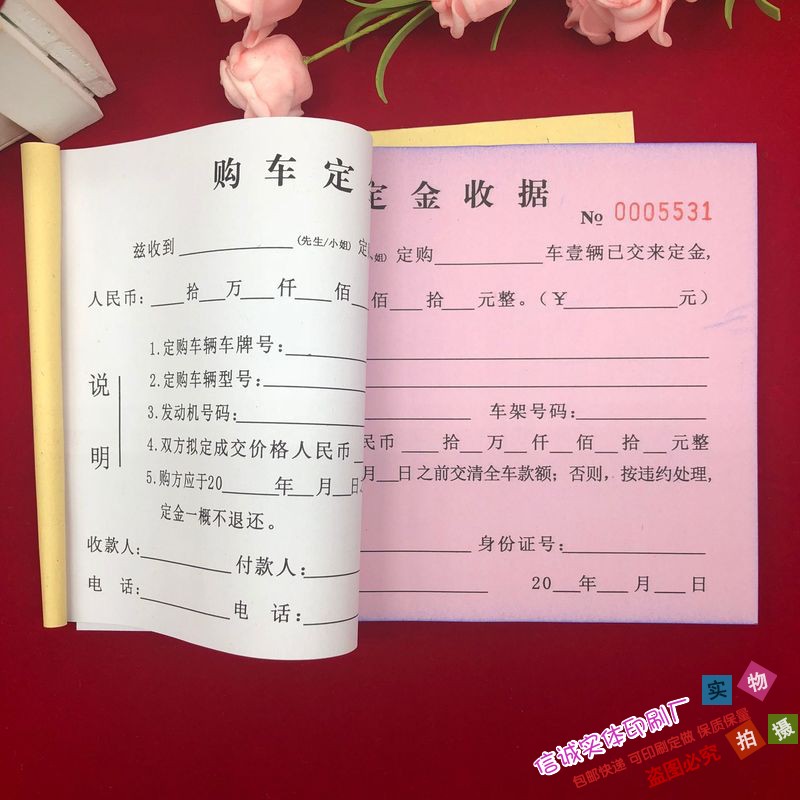 购车定
兹收到__________(先生/小姐)定
人民币:___拾___万___仟___佰
说明
1.定购车辆车牌号:
2.定购车辆型号:
3.发动机号码:
4.双方拟定成交价格人民币
5.购方应于20_____年___月___日
定金一概不退还。
收款人:________付款人:
电 话:________电 话:
定金收据
No 0005531
姐) 定购__________车壹辆已交来定金,
佰___拾___元整。(¥__________元)
车架号码:
民币___拾___万___仟___佰___拾___元整
月___日之前交清全车款额;否则,按违约处理,
身份证号:
20___年___月___日
实物
拍摄
信诚实体印刷厂
包邮快递 可印刷定做 保质保量
盗图必究